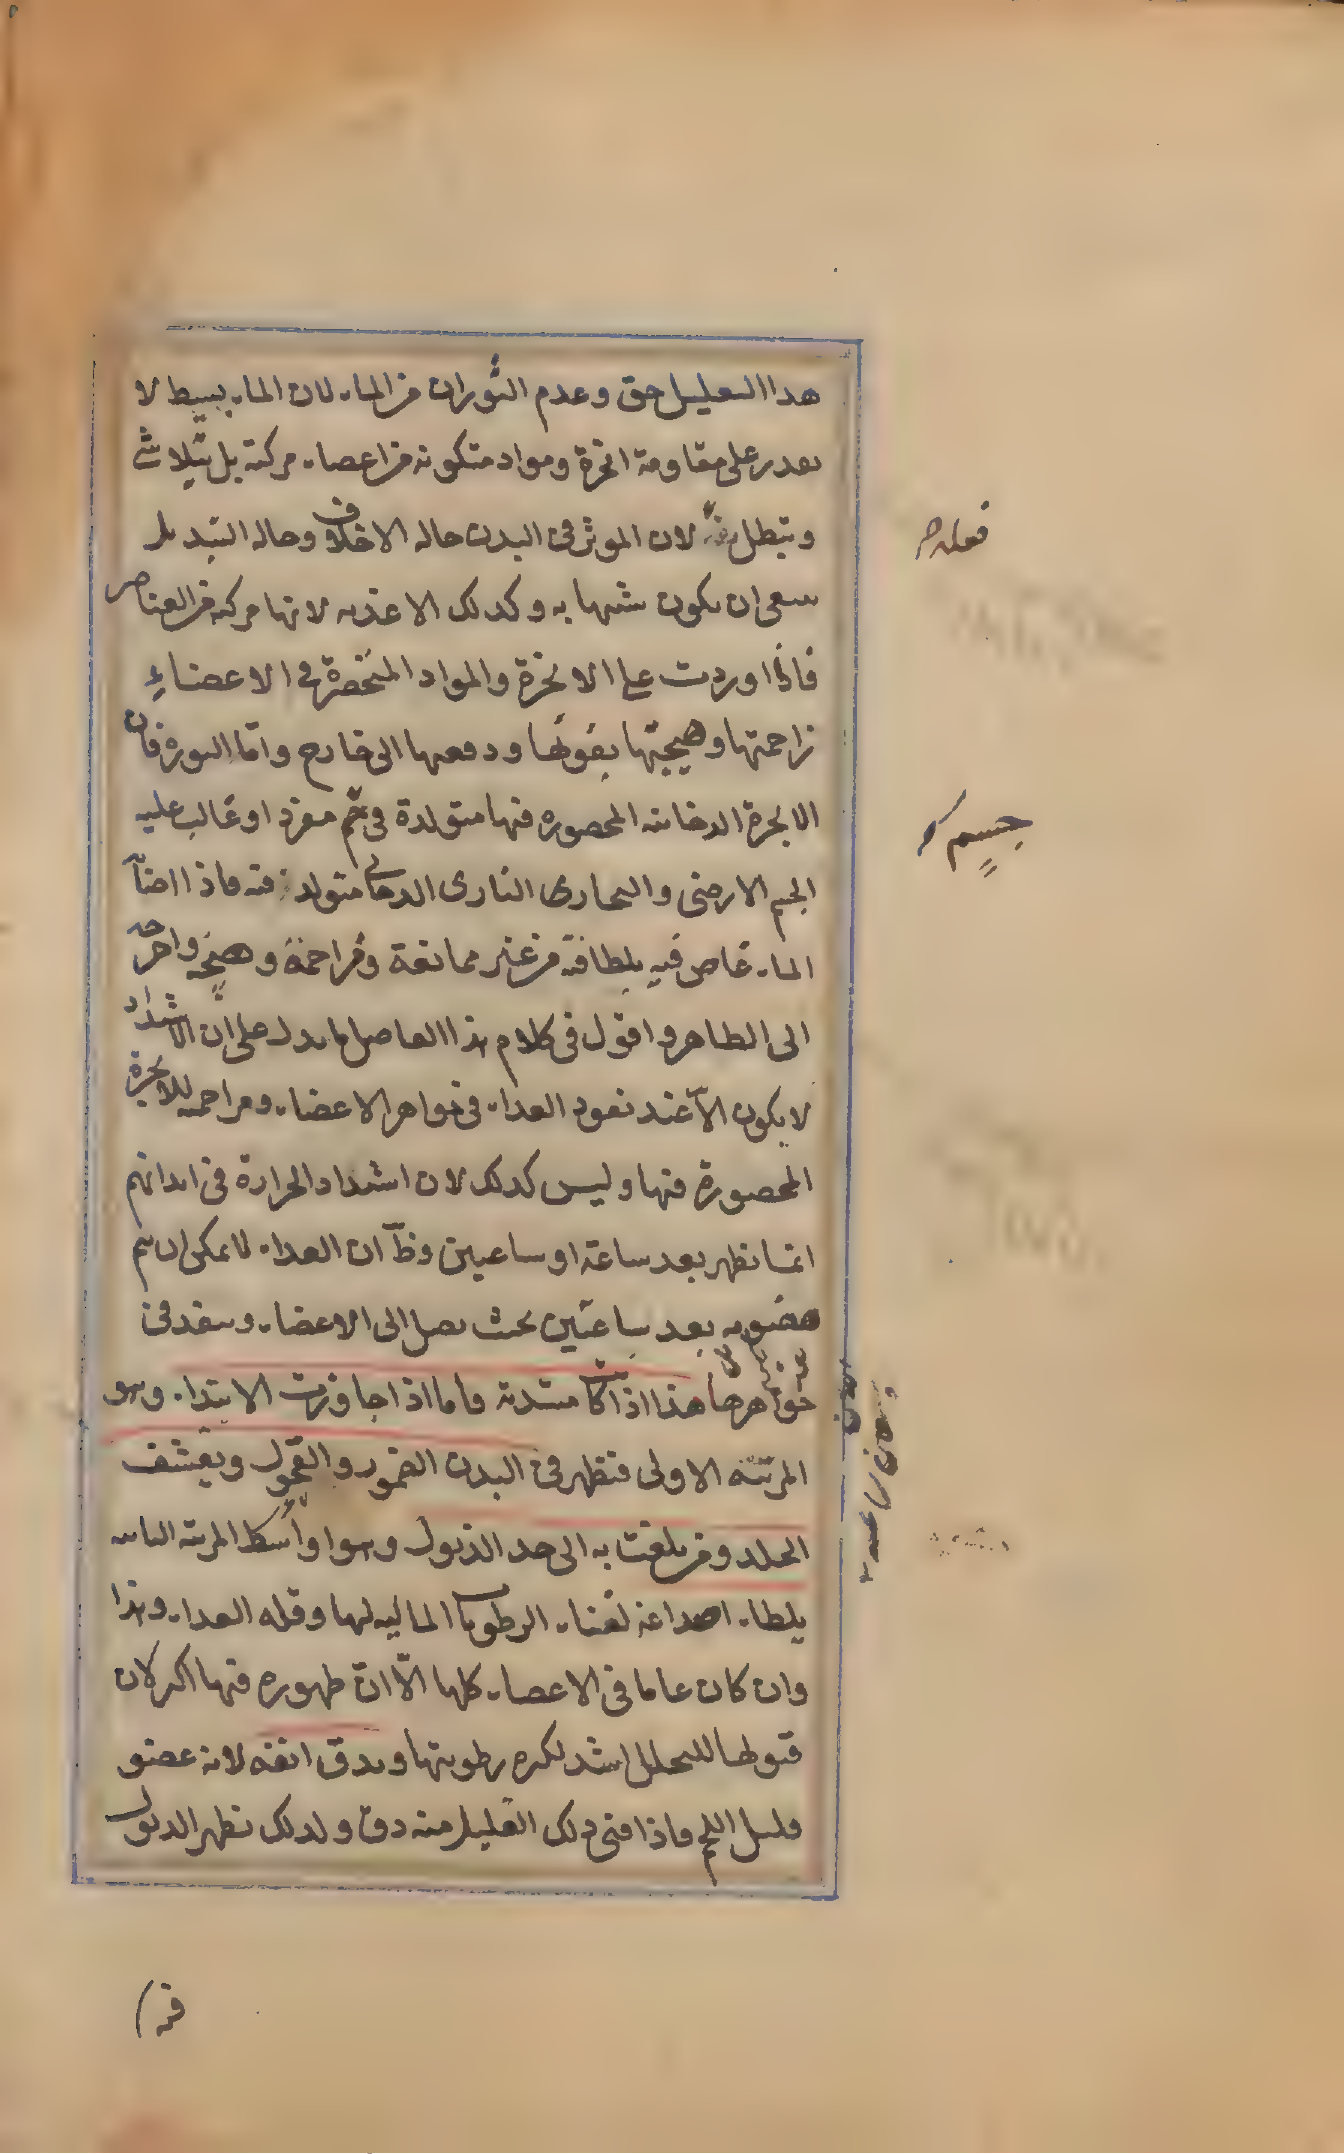 هذا التعليل حق وعدم الثوران من الماء لان الماء بسيط لا
يقدر على مقاومة ابخرة ومواد متكونة من اعضاء مركبة بل يتلاشى
ويبطل لان الموثر في البدن حالة الاخلاف وحالة التبديل
ينبغي ان يكون شبيها به وكذلك الاغذية لانها مركبة من العناصر
فاذا وردت على الابخرة والمواد المنحصرة في الاعضاء
زاحمتها وهيجتها بقوتها ودفعها الى خارج واما النورة فان
الابخرة الدخانية المحصورة فيها متولدة في جسم مفرد او غالب عليه
الجسم الارضي والبخاري الناري الدخاني متولد فيه فاذا اصاب
الماء غاص فيه بلطافة من غير ممانعة ومزاحمة وهيجه واخرجه
الى الظاهر واقول في كلام هذا الفاضل ما يدل على ان الاشتداد
لا يكون الا عند نفوذ الغذاء في جواهر الاعضاء ومزاحمته للابخرة
المحصورة فيها وليس كذلك لان اشتداد الحرارة في ابدانهم
انما يظهر بعد ساعة او ساعتين وظ ان الغذاء لا يمكن ان يتم
هضومه بعد ساعتين بحيث يصل الى الاعضاء وينفذ في
جواهرها هذا اذا كانت مبتدئة فاما اذا جاوزت الابتداء وهو
المرتبة الاولى فيظهر في البدن الضمور والقحول ويقشف
الجلد ومن بلغت به الى حد الذبول وهو اواسط المرتبة الثانية
يلطاء اصداغه لفناء الرطوبات المالية لها وقلة الغذاء وهذا
وان كان عاما في الاعضاء كلها الا ان ظهوره فيها اكثر لان
قبولها للتحلل اشد لكثرة رطوبتها ويدق انفه لانه عضو
قليل اللحم فاذا فنى ذلك القليل منه دق ولذلك يظهر الذبول
فعله
جسم